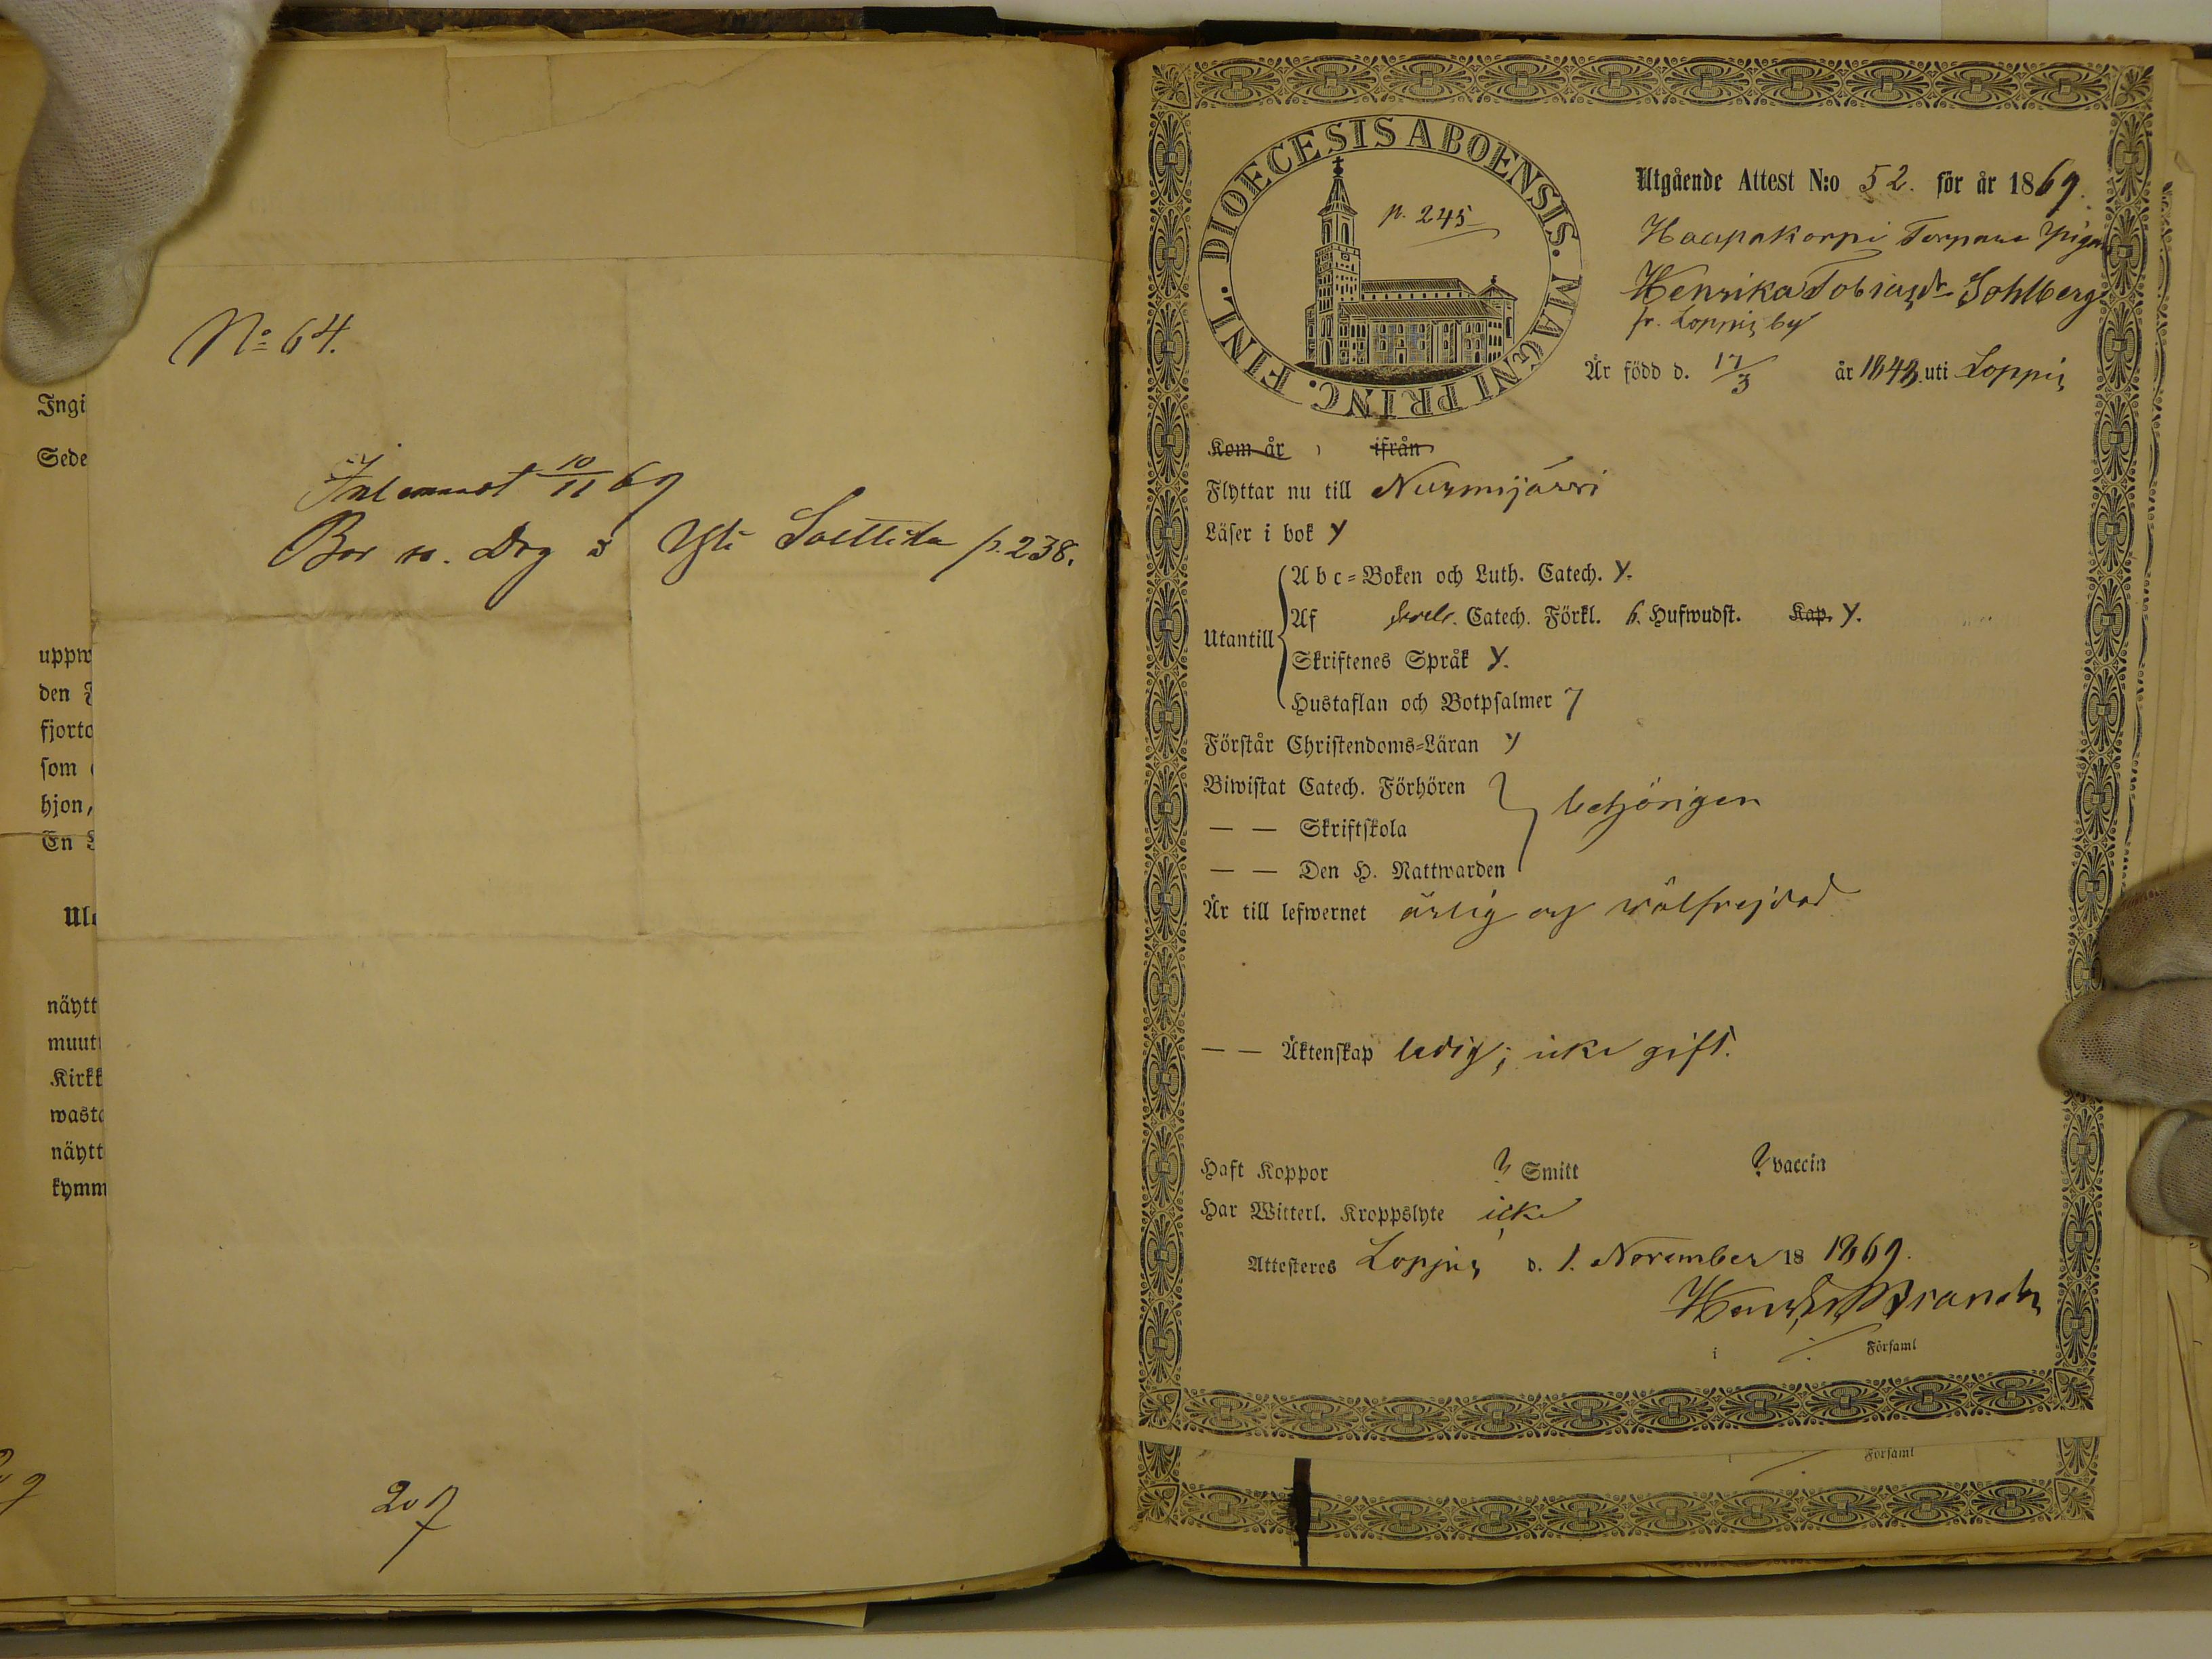 No 64.
Inlemnadt 10/11 69
Bor so. Drg å Yli Solttila p. 238.
207
Ingi
Sede
uppw
den
fjorto
som
hjon,
En
näytt
muut
Kirkk
wasta
näytt
kymm
DIOECESIS ABOENSIS. MAGNI PRINC. FINL.
p. 245
Utgående Attest N:o 52. för år 1869.
Haapakorpi Torpare Pigan
Henrika Tobiasdr Sohlberg
fr. Loppis by
Är född d. 17/3 år 1843 uti Loppis
Kom år ifrån
Flyttar nu till Nurmijärvi
Läser i bok y
Utantill
Abc=Boken och Luth. Catech. y.
Af Svebl. Catech. Förkl. 6. Hufwudst. Kap. y.
Skriftenes Språk y.
Hustaflan och Botpsalmer y
Förstår Christendoms=Läran y
Biwistat Catech. Förhören
— — Skriftskola behörigen
— — Den H. Nattwarden
Är till lefwernet ärlig och wälfrejdad
— — Äktenskap ledig; icke gift.
Haft Koppor ? Smitt ? vaccin
Har Witterl. Kroppslyte icke
Attesteres Loppis d. 1. November 18 1869.
i ./. Församl
Församl